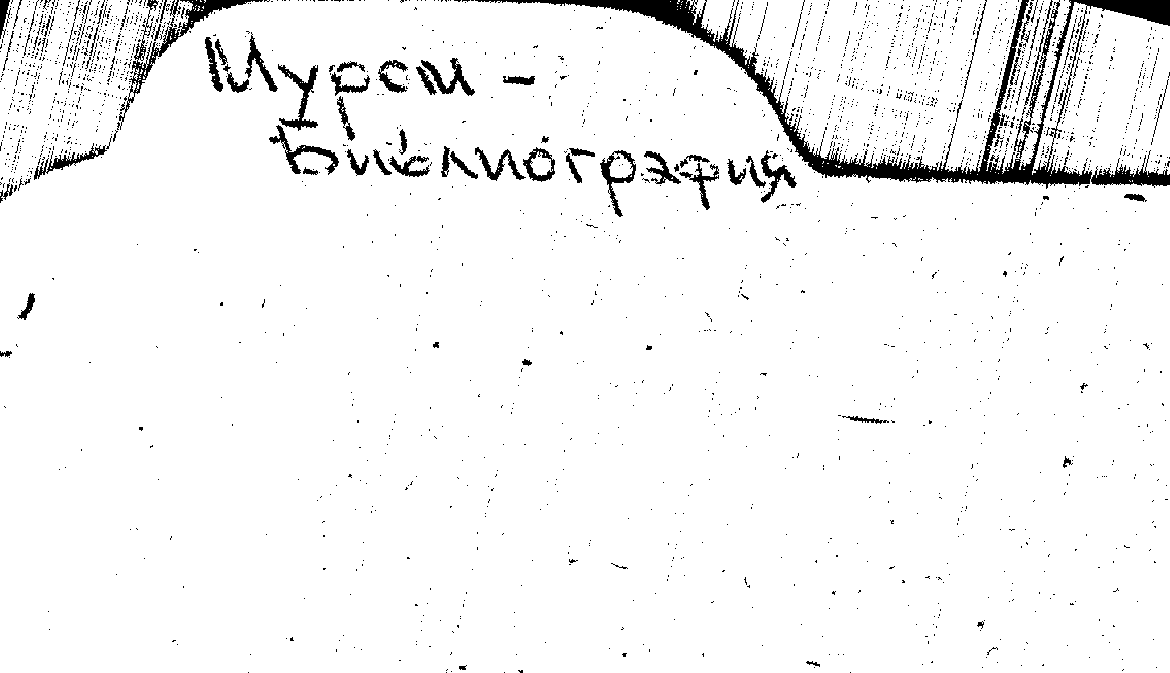 Муром -
Библиография